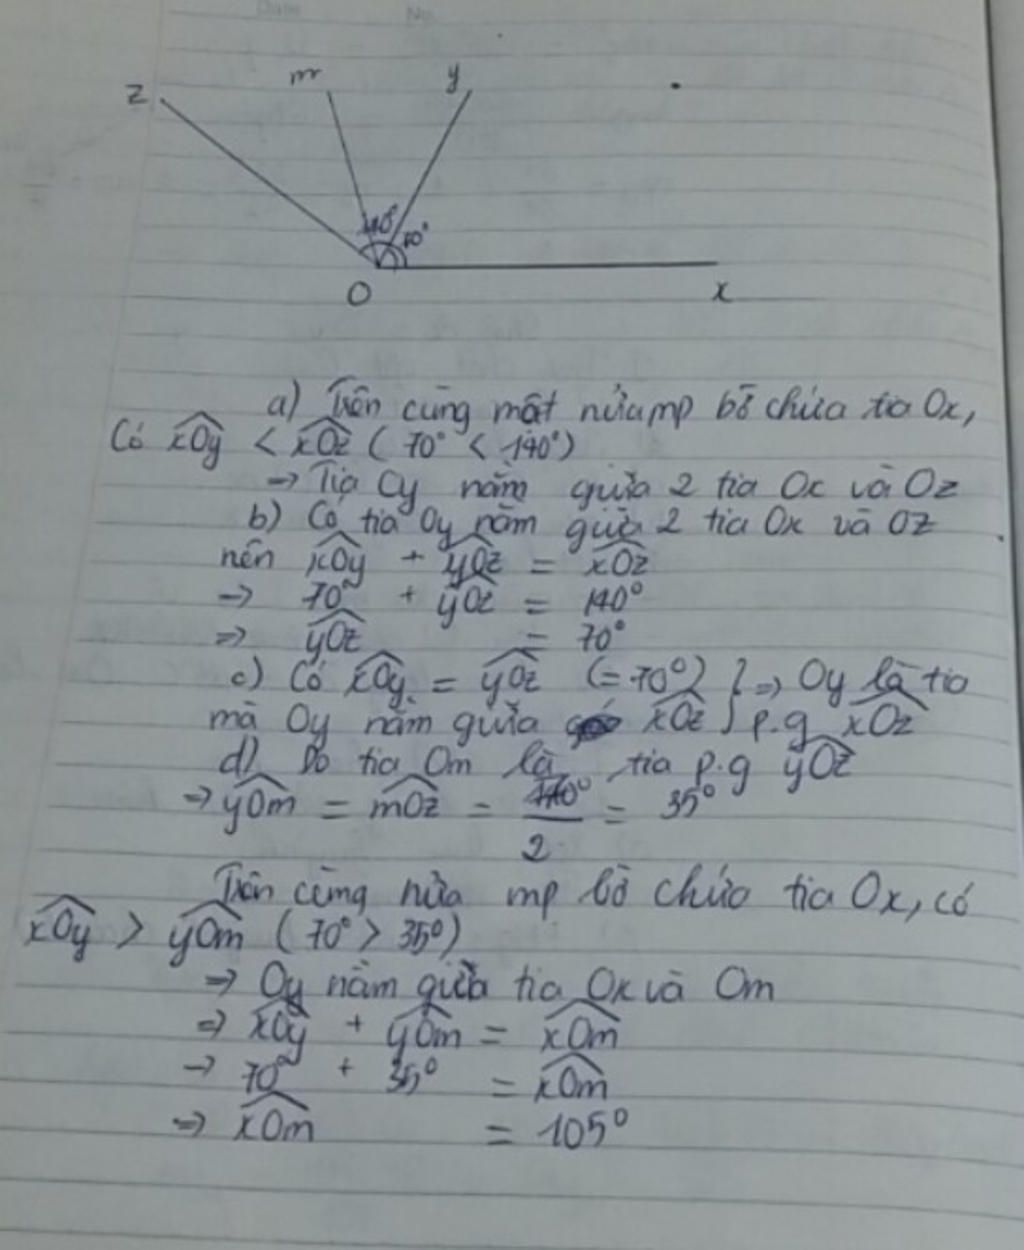 z m y
140° 70°
O x
a) Trên cùng một nửa mp bờ chứa tia Ox,
Có xOy < xOz ( 70° < 140°)
→ Tia Oy nằm giữa 2 tia Ox và Oz
b) Có tia Oy nằm giữa 2 tia Ox và Oz
nên xOy + yOz = xOz
→ 70° + yOz = 140°
=> yOz = 70°
c) Có xOy = yOz (= 70°) } => Oy là tia
mà Oy nằm giữa xOz } p.g xOz
d) Do tia Om là tia p.g yOz
→ yOm = mOz = /2 = 35°
Trên cùng nửa mp bờ chứa tia Ox, có
xOy > yOm ( 70° > 35°)
=> Oy nằm giữa tia Ox và Om
=> xOy + yOm = xOm
→ 70° + 35° = xOm
=> xOm = 105°